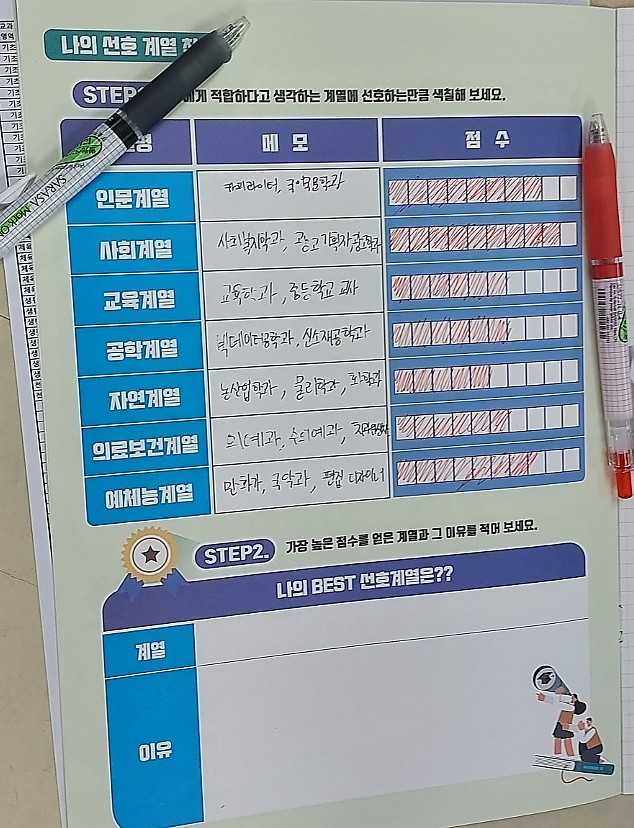 나의 선호 계열 찾
STEP
에게 적합하다고 생각하는 계열에 선호하는만큼 색칠해 보세요.
명 메 모 점 수
인문계열 카피라이터, 국어국문학과
사회계열 사회복지학과, 광고기획자,
교육계열 교육학과, 중등학교 교사
공학계열 빅데이터공학과, 신소재공학과
자연계열 농산업학과, 물리학과, 화학과
의료보건계열 의예과, 수의예과,
예체능계열 만화가, 국악과, 편집 디자이너
STEP2. 가장 높은 점수를 얻은 계열과 그 이유를 적어 보세요.
나의 BEST 선호계열은??
계열
이유
SARASA